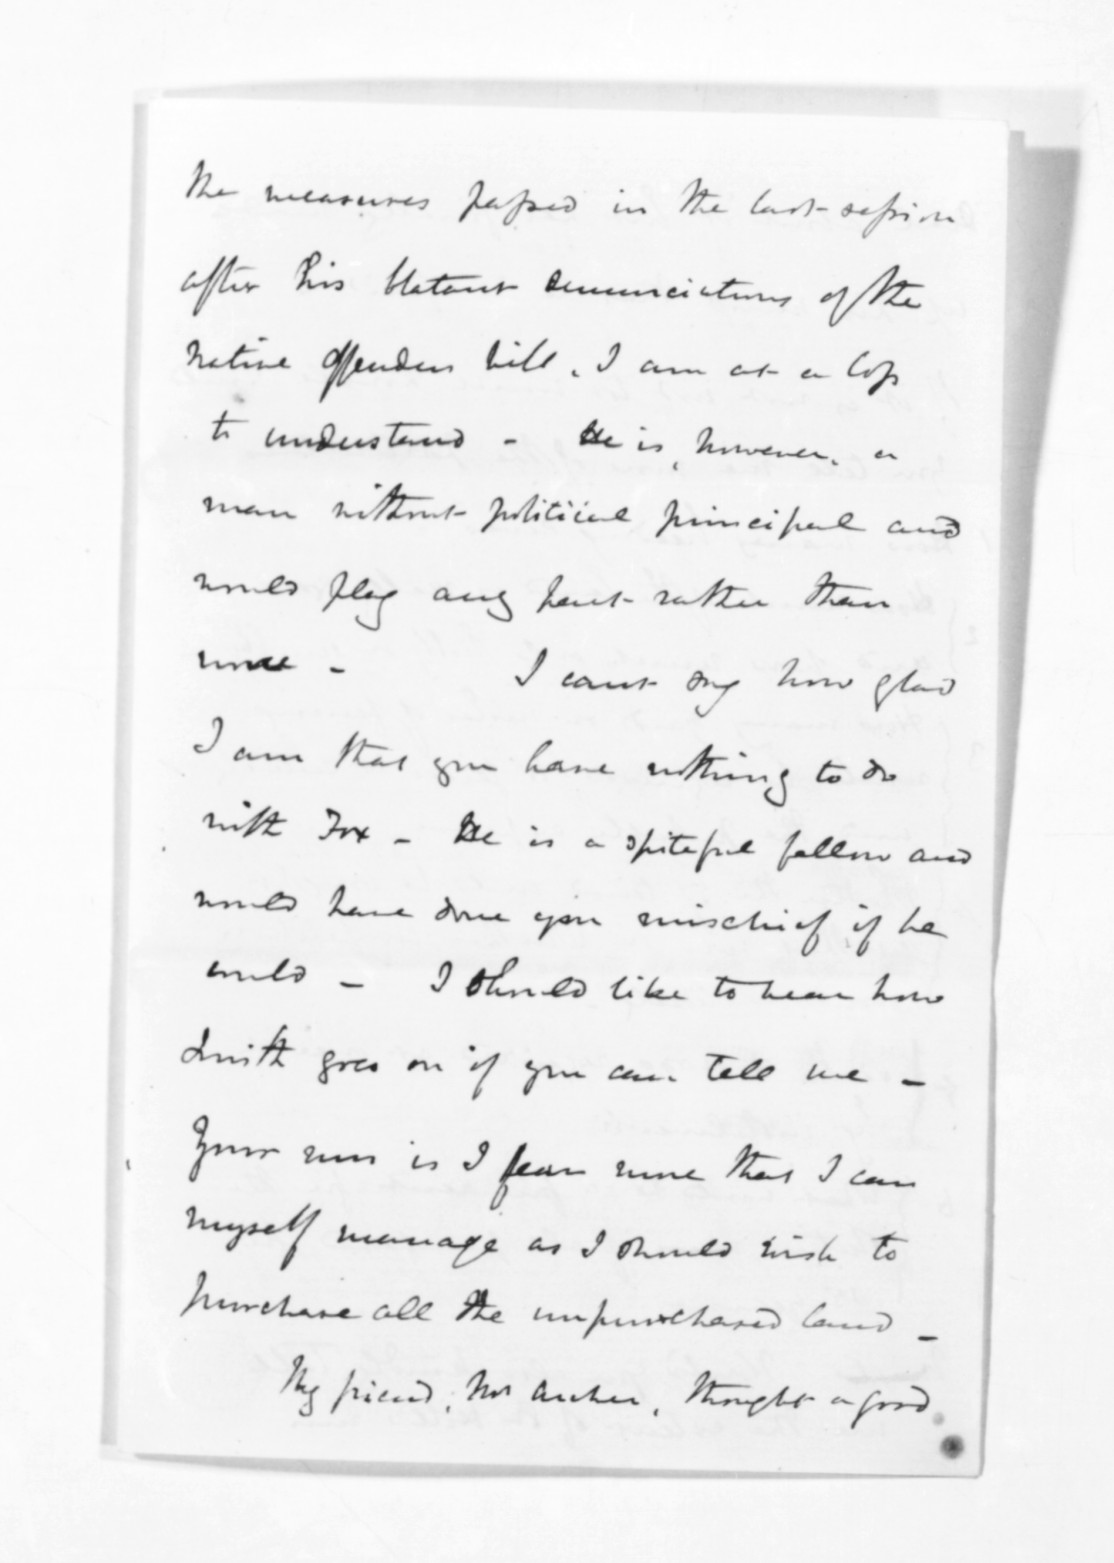 the measures passed in the last session
after his blatant denunciations of the
native offenders bill. I am at a loss
to understand - He is, however, a
man without political principal and
would play any part rather than
none - I cant say how glad
I am that you have nothing to do
with Fox - He is a spiteful fellow and
would have done you mischief if he
could - I should like to hear how
Smith goes on if you can tell me -
Your run is I fear more than I can
myself manage as I should wish to
purchase all the unpurchased land -
My friend, not Archer, thought a good